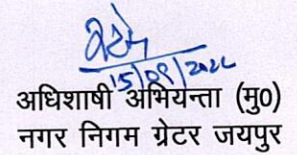 15/09/2022
अधिशाषी अभियन्ता (मु0)
नगर निगम ग्रेटर जयपुर